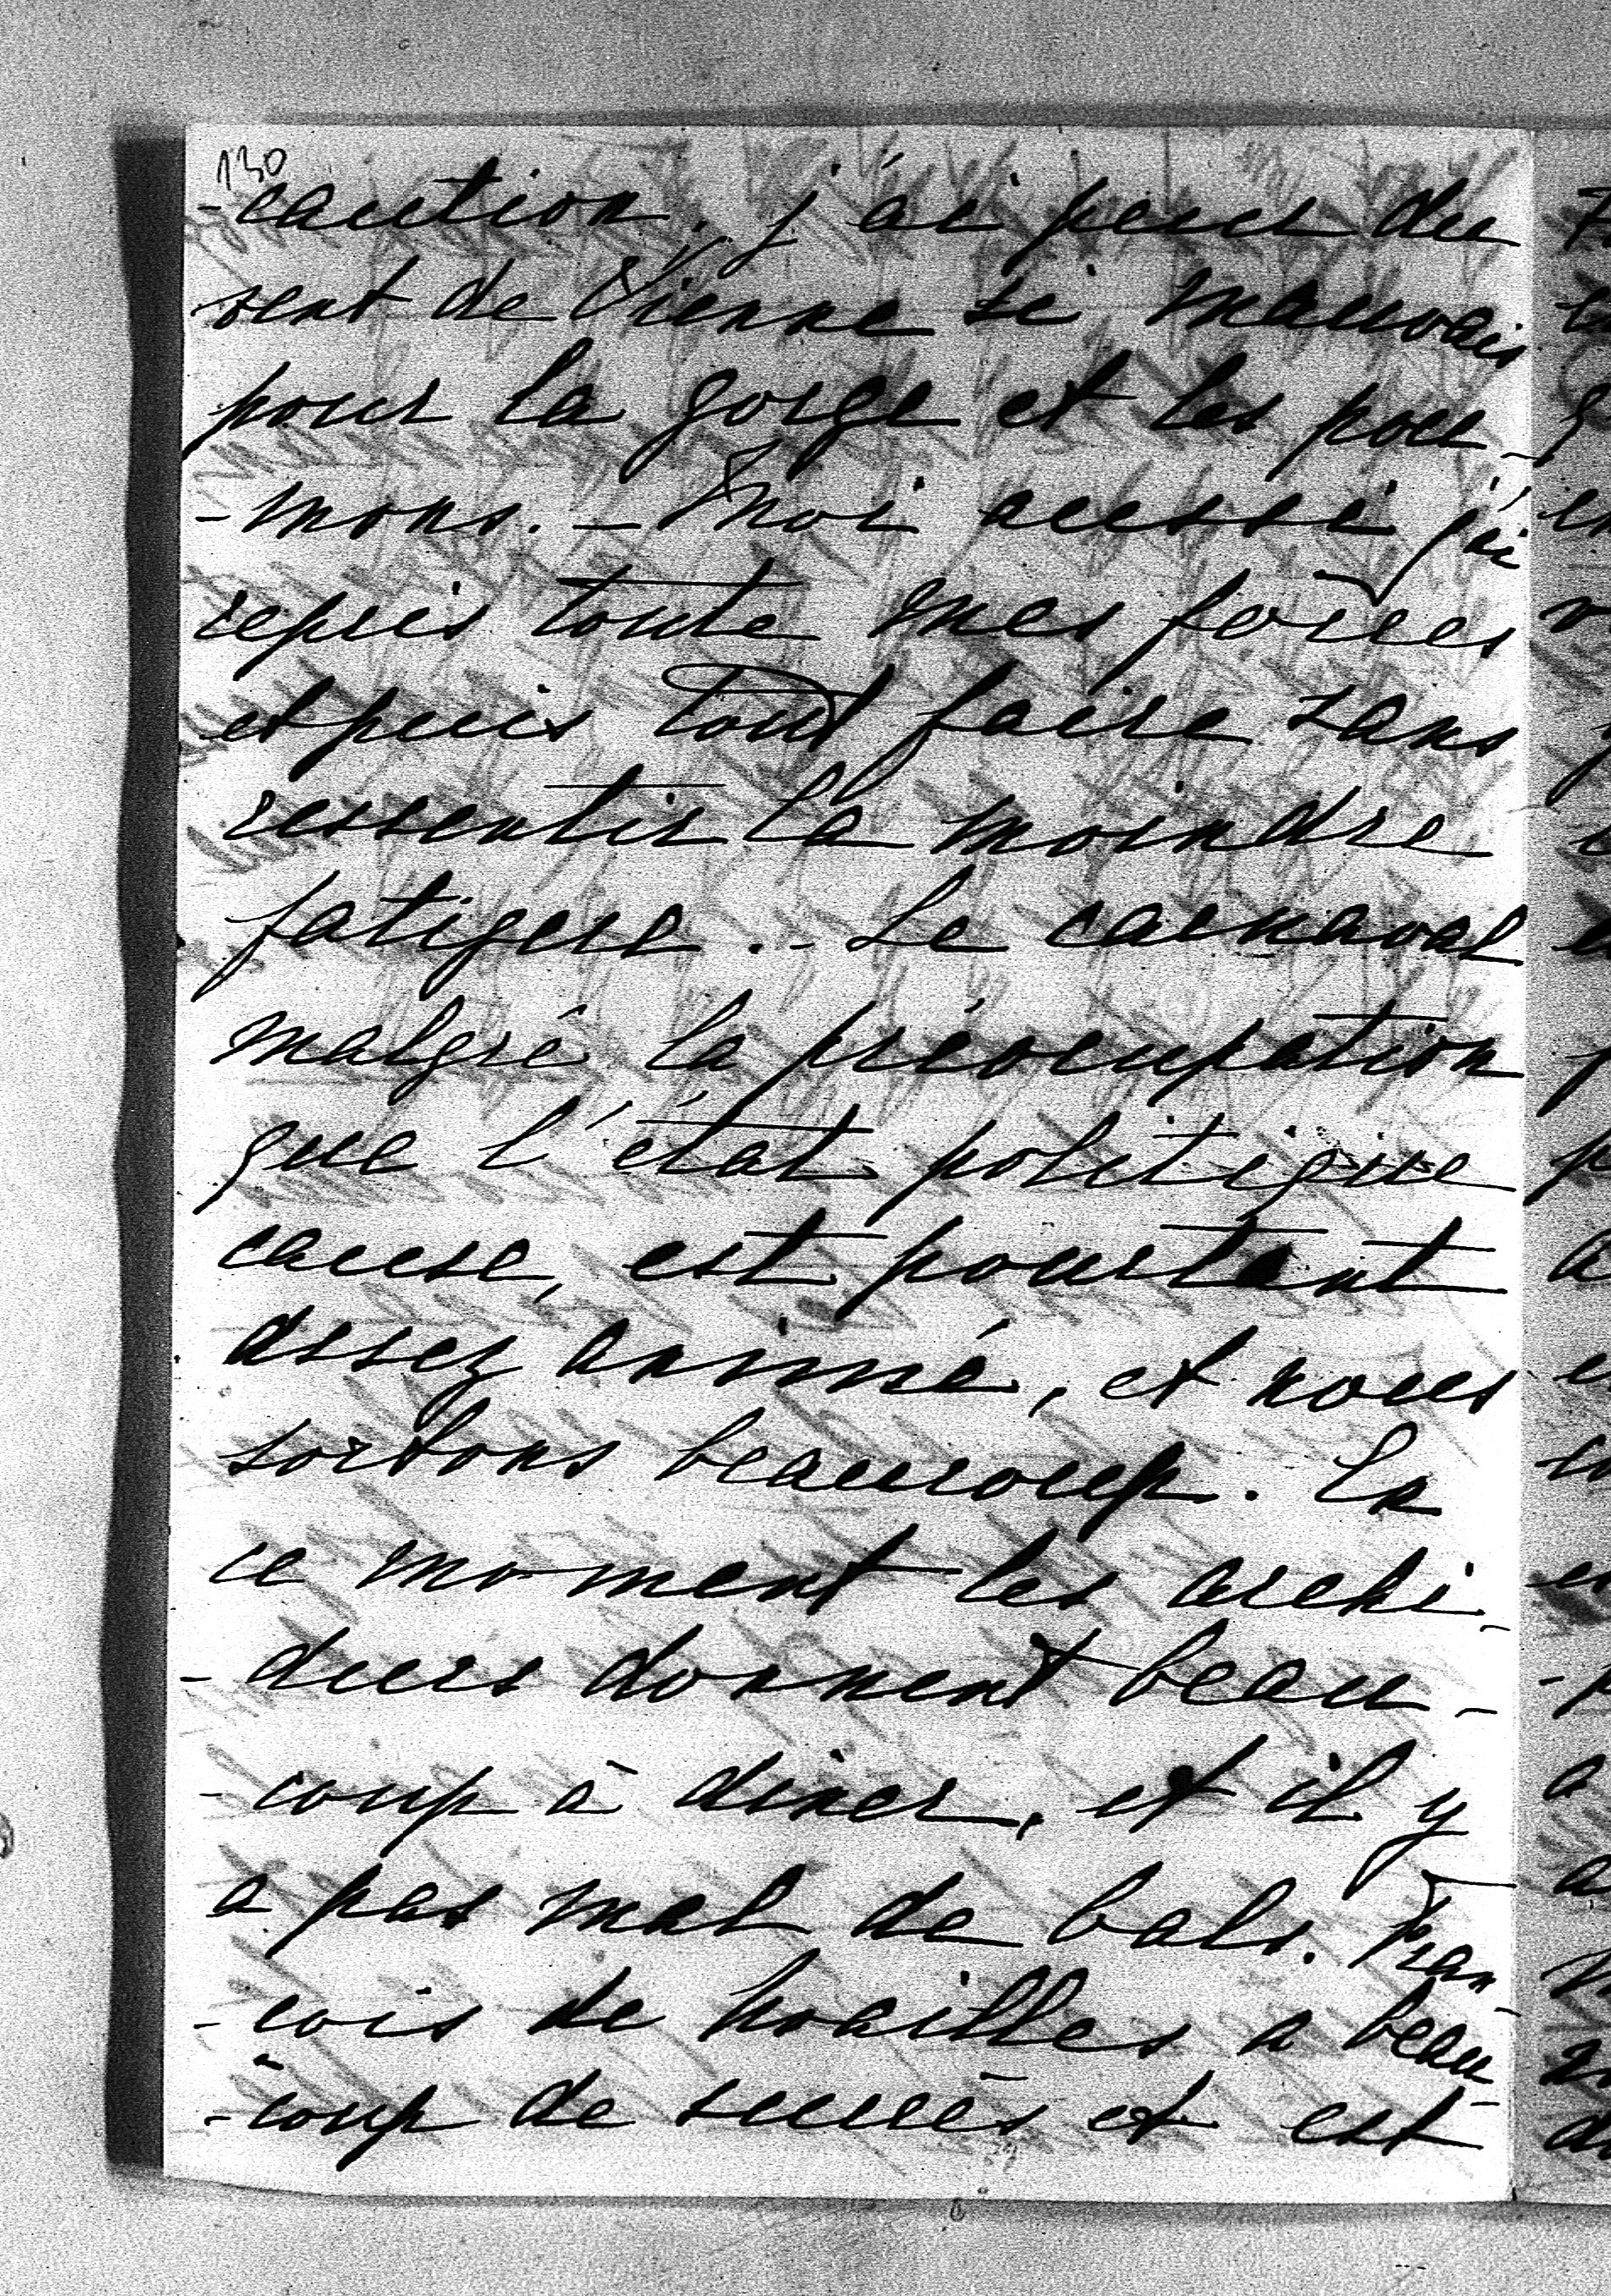 130
-caution. j'ai peur du
vent de Vienne si mauvais
pour la gorge et les pou-
-mons. - Moi aussi j'ai
repris toute mes forces
et puis tout faire sans
ressentir la moindre
fatigue. - Le carnaval
malgré la préocupation
que l'état politique
cause, est pourtant
assez animé, et nous
sortons beaucoup. En
ce moment les archi-
-ducs donnent beau-
-coup à diner, et il y
a pas mal de bals. Fran-
-cois de Noailles a beau-
-coup de succès et est